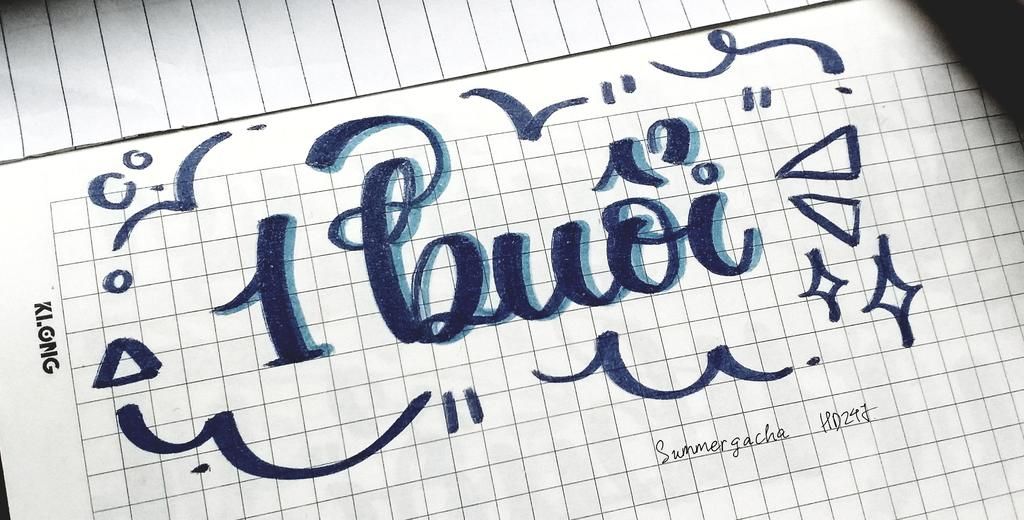 1 buổi
KLONG
Summergacha HD247